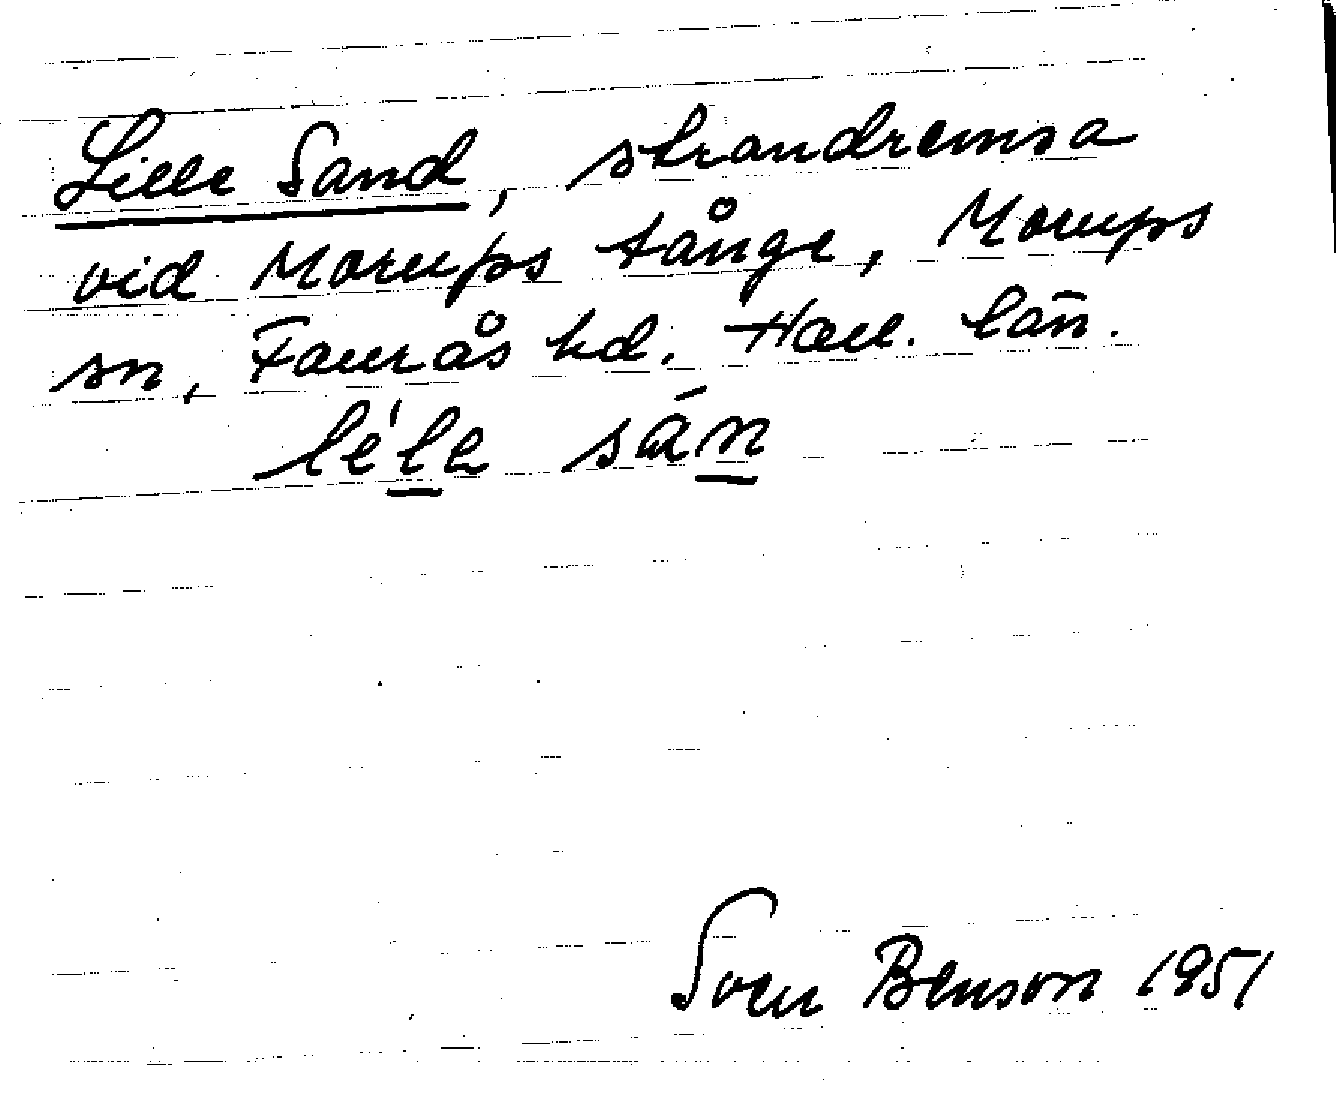 Lille Sand, strandremsa
vid Morups tånge, Morups
sn, Faurås hd. Hall. län.
lé'le sán
Sven Benson 1951